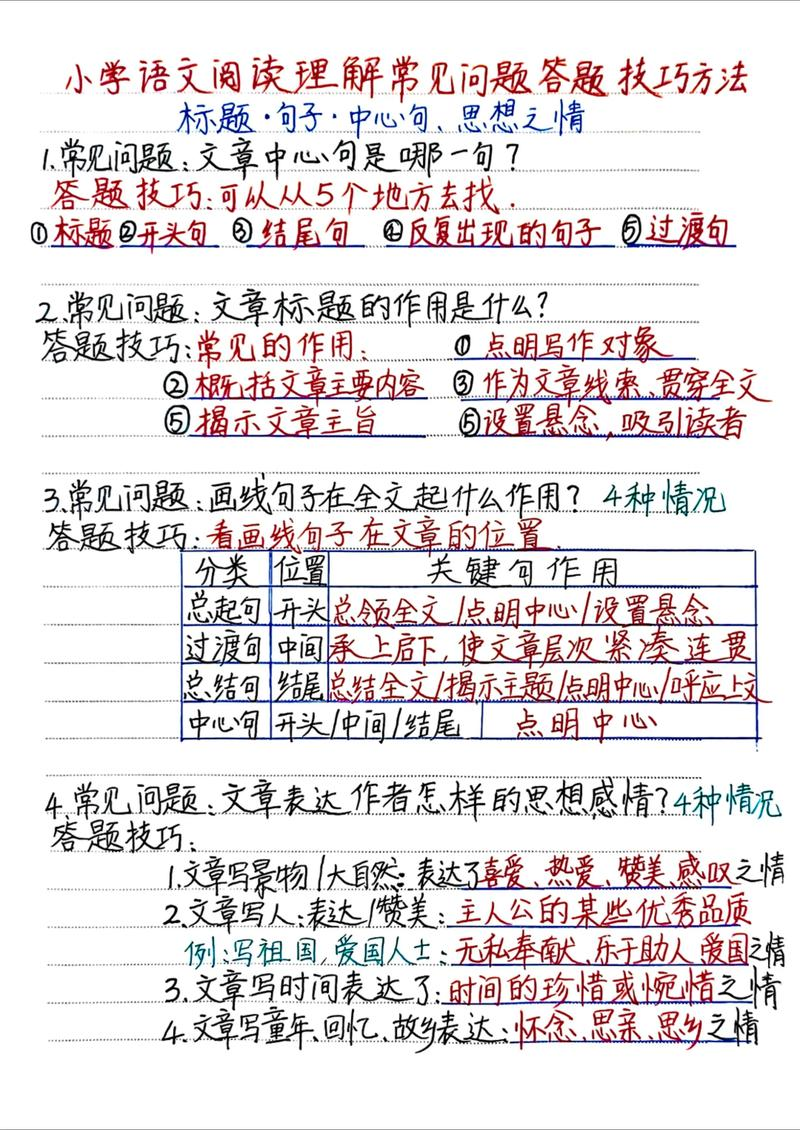 小学语文阅读理解常见问题答题技巧方法
标题·句子·中心句、思想之情
1.常见问题:文章中心句是哪一句?
答题技巧:可以从从5个地方去找.
①标题②开头句 ③结尾句 ④反复出现的句子 ⑤过渡句
2.常见问题:文章标题的作用是什么?
答题技巧:常见的作用: ① 点明写作对象
②概况括文章主要内容 ③作为文章线索、贯穿全文
⑤揭示文章主旨 ⑤设置悬念,吸引读者
3.常见问题:画线句子在全文起什么作用? 4种情况
答题技巧:看画线句子在文章的位置.
分类 位置 关键句作用
总起句 开头 总领全文/点明中心/设置悬念
过渡句 中间 承上启下,使文章层次紧凑连贯
总结句 结尾 总结全文/揭示主题/点明中心/呼应上文
中心句 开头/中间/结尾 点明中心
4.常见问题:文章表达作者怎样的思想感情?4种情况
答题技巧:
1.文章写景物/大自然:表达了喜爱、热爱、赞美、感叹之情
2.文章写人:表达/赞美:主人公的某些优秀品质
例:写祖国,爱国人士:无私奉献、乐于助人 爱国之情
3.文章写时间表达了:时间的珍惜或惋惜之情
4.文章写童年、回忆、故乡表达:怀念、思亲、思乡之情